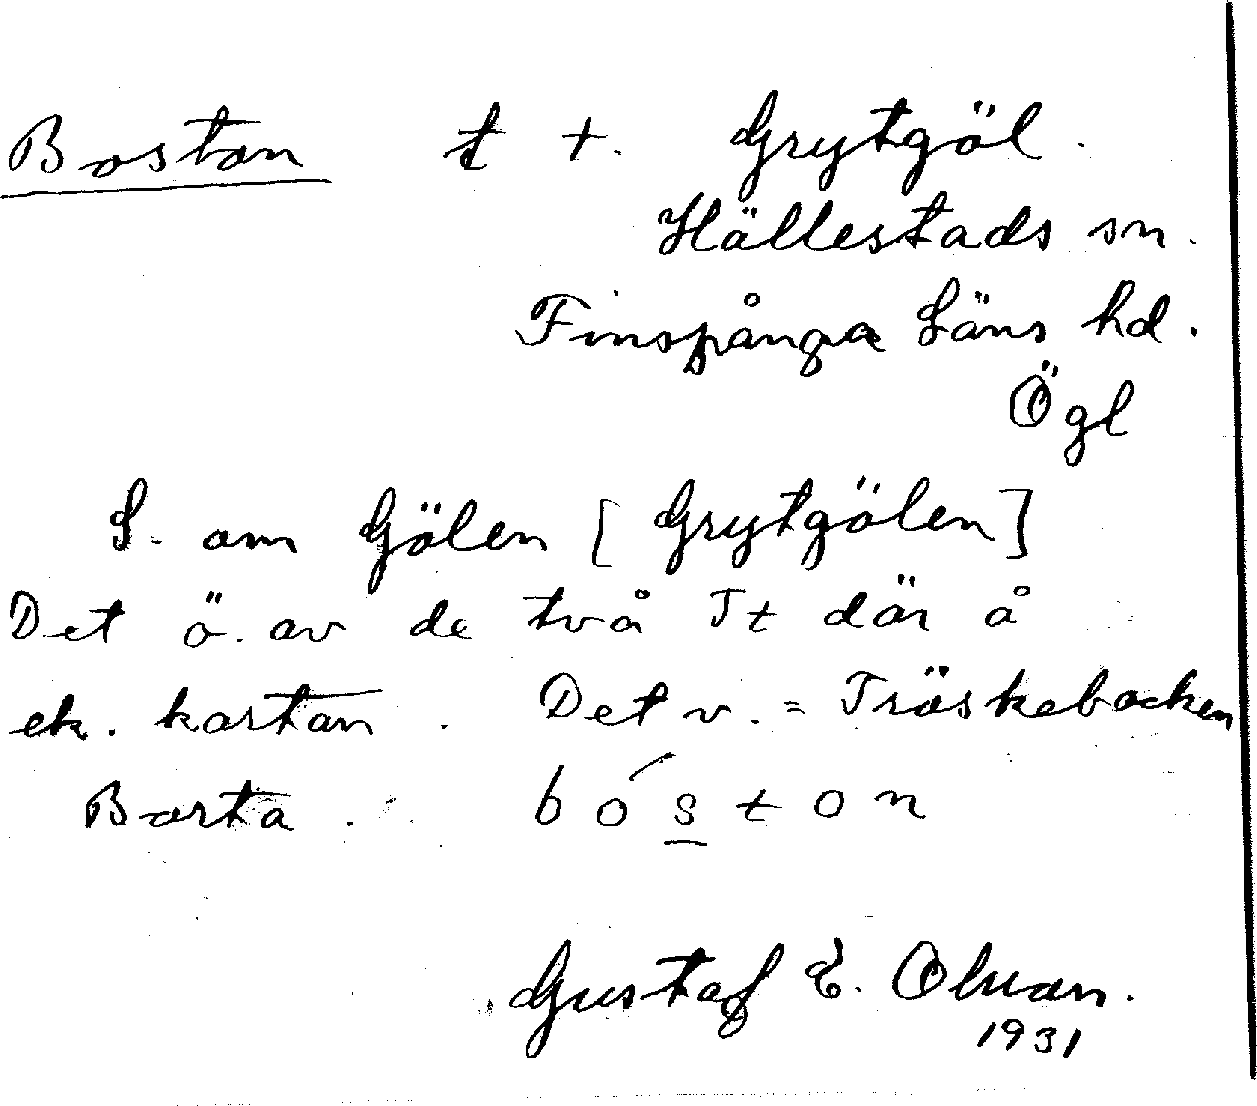 Boston t +. Grytgöl.
Hällestads sn.
Finspånga Läns hd.
Ögl
S. om Gölen [Grytgölen]
Det ö. av de två Tt där å
ek. kartan. Det v. = Träskebacken
Borta. bóston
Gustaf E. Olson.
1931